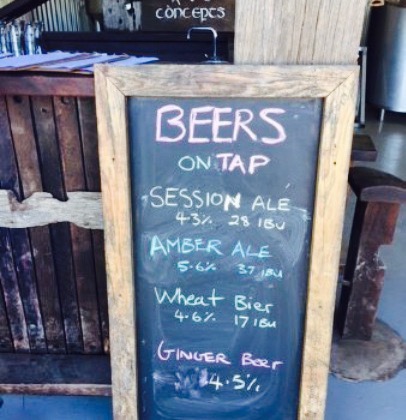 CONCEPTS
BEERS
ON TAP
SESSION ALE
4.3% 28 IBU
AMBER ALE
5.6% 37 IBU
Wheat Bier
4.6% 17 IBU
GINGER Beer
4.5%